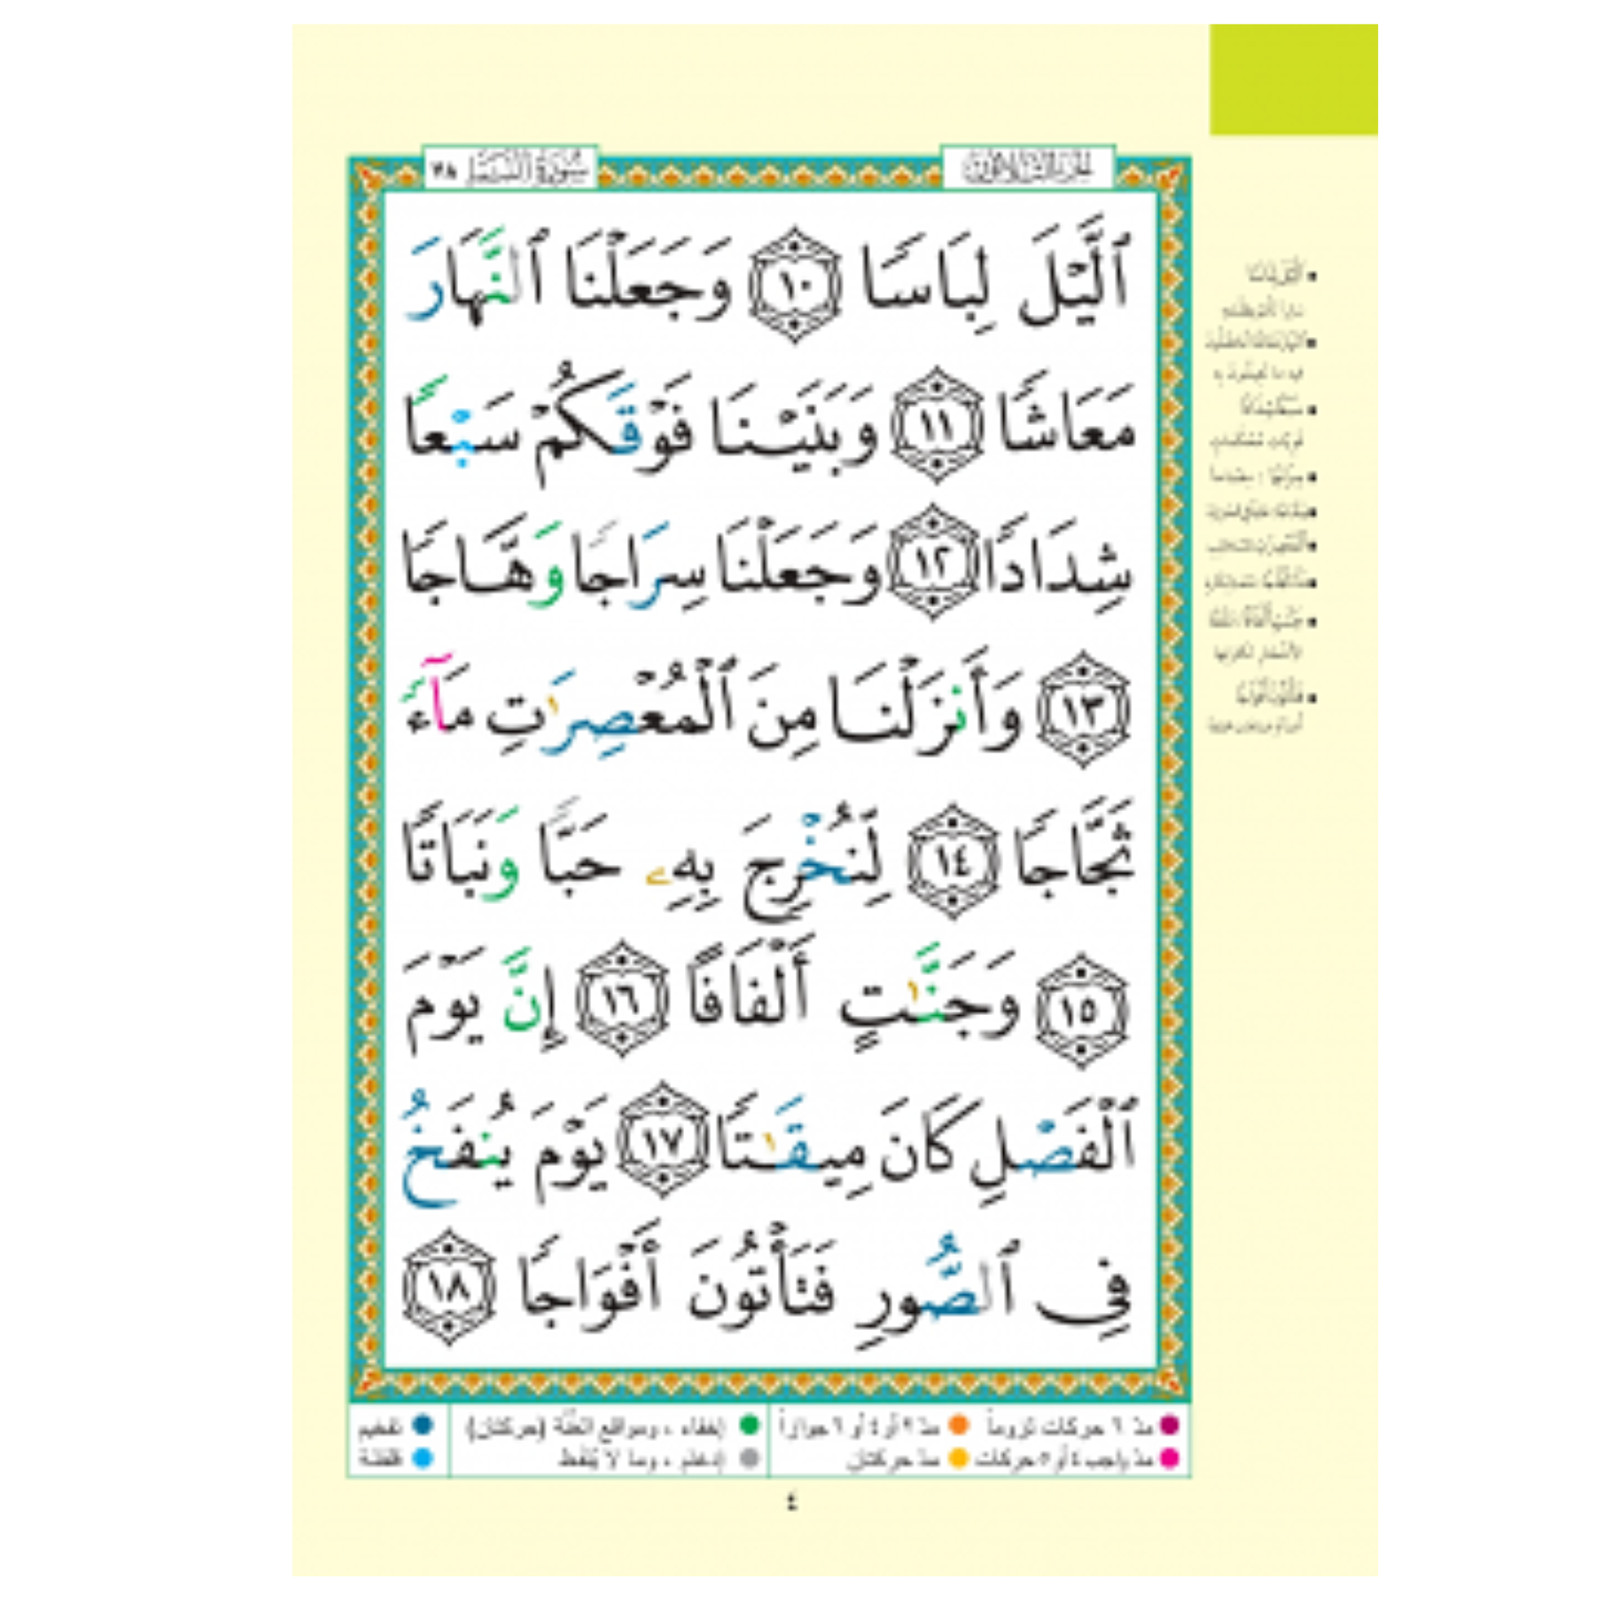 الجزء الثلاثون
سورة النبإ ٧٨
ٱلَّيْلَ لِبَاسًا ١٠ وَجَعَلْنَا ٱلنَّهَارَ
مَعَاشًا ١١ وَبَنَيْنَا فَوْقَكُمْ سَبْعًا
شِدَادًا ١٢ وَجَعَلْنَا سِرَاجًا وَهَّاجًا
١٣ وَأَنزَلْنَا مِنَ ٱلْمُعْصِرَٰتِ مَآءً
ثَجَّاجًا ١٤ لِّنُخْرِجَ بِهِۦ حَبًّا وَنَبَاتًا
١٥ وَجَنَّٰتٍ أَلْفَافًا ١٦ إِنَّ يَوْمَ
ٱلْفَصْلِ كَانَ مِيقَٰتًا ١٧ يَوْمَ يُنفَخُ
فِى ٱلصُّورِ فَتَأْتُونَ أَفْوَاجًا ١٨
• الَّيْلَ لِبَاسًا
• سَبْعًا شِدَادًا
قويّات مُحْكمات
الأشجار لكثرتها
• فَتَأْتُونَ أَفْوَاجًا
مدّ ٦ حركات لزوماً
مدّ ٢ أو ٤ أو ٦ جوازاً
إخفاء ، ومواقع الغنّة (حركتان)
تفخيم
مدّ واجب ٤ أو ٥ حركات
مدّ حركتان
إدغام ، وما لا يُلفظ
قلقلة
٤